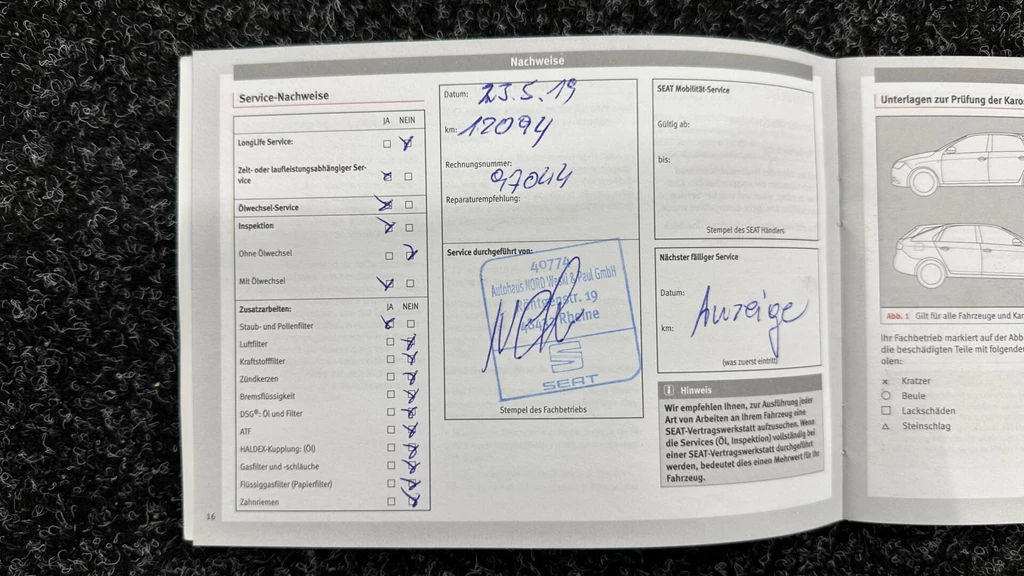 Nachweise
Service-Nachweise
JA NEIN
LongLife Service:
Zeit- oder laufleistungsabhängiger Ser-
vice
Ölwechsel-Service
Inspektion
Ohne Ölwechsel
Mit Ölwechsel
Zusatzarbeiten: JA NEIN
Staub- und Pollenfilter
Luftfilter
Kraftstofffilter
Zündkerzen
Bremsflüssigkeit
DSG®: Öl und Filter
ATF
HALDEX-Kupplung: (Öl)
Gasfilter und -schläuche
Flüssiggasfilter (Papierfilter)
Zahnriemen
16
Datum: 23.5.19
km: 12094
Rechnungsnummer:
97044
Reparaturempfehlung:
Service durchgeführt von:
40774
Autohaus NORD & Paul GmbH
19
Rheine
SEAT
Stempel des Fachbetriebs
SEAT Mobilität-Service
Gültig ab:
bis:
Stempel des SEAT Händlers
Nächster fälliger Service
Datum:
Anzeige
km:
(was zuerst eintritt)
i Hinweis
Wir empfehlen Ihnen, zur Ausführung jeder
Art von Arbeiten an Ihrem Fahrzeug eine
SEAT-Vertragswerkstatt aufzusuchen. Wenn
die Services (Öl, Inspektion) vollständig bei
einer SEAT-Vertragswerkstatt durchgeführt
werden, bedeutet dies einen Mehrwert für Ihr
Fahrzeug.
Unterlagen zur Prüfung der Karo
Abb. 1 Gilt für alle Fahrzeuge und Kar
Ihr Fachbetrieb markiert auf der Abb
die beschädigten Teile mit folgenden
olen:
Kratzer
Beule
Lackschäden
Steinschlag